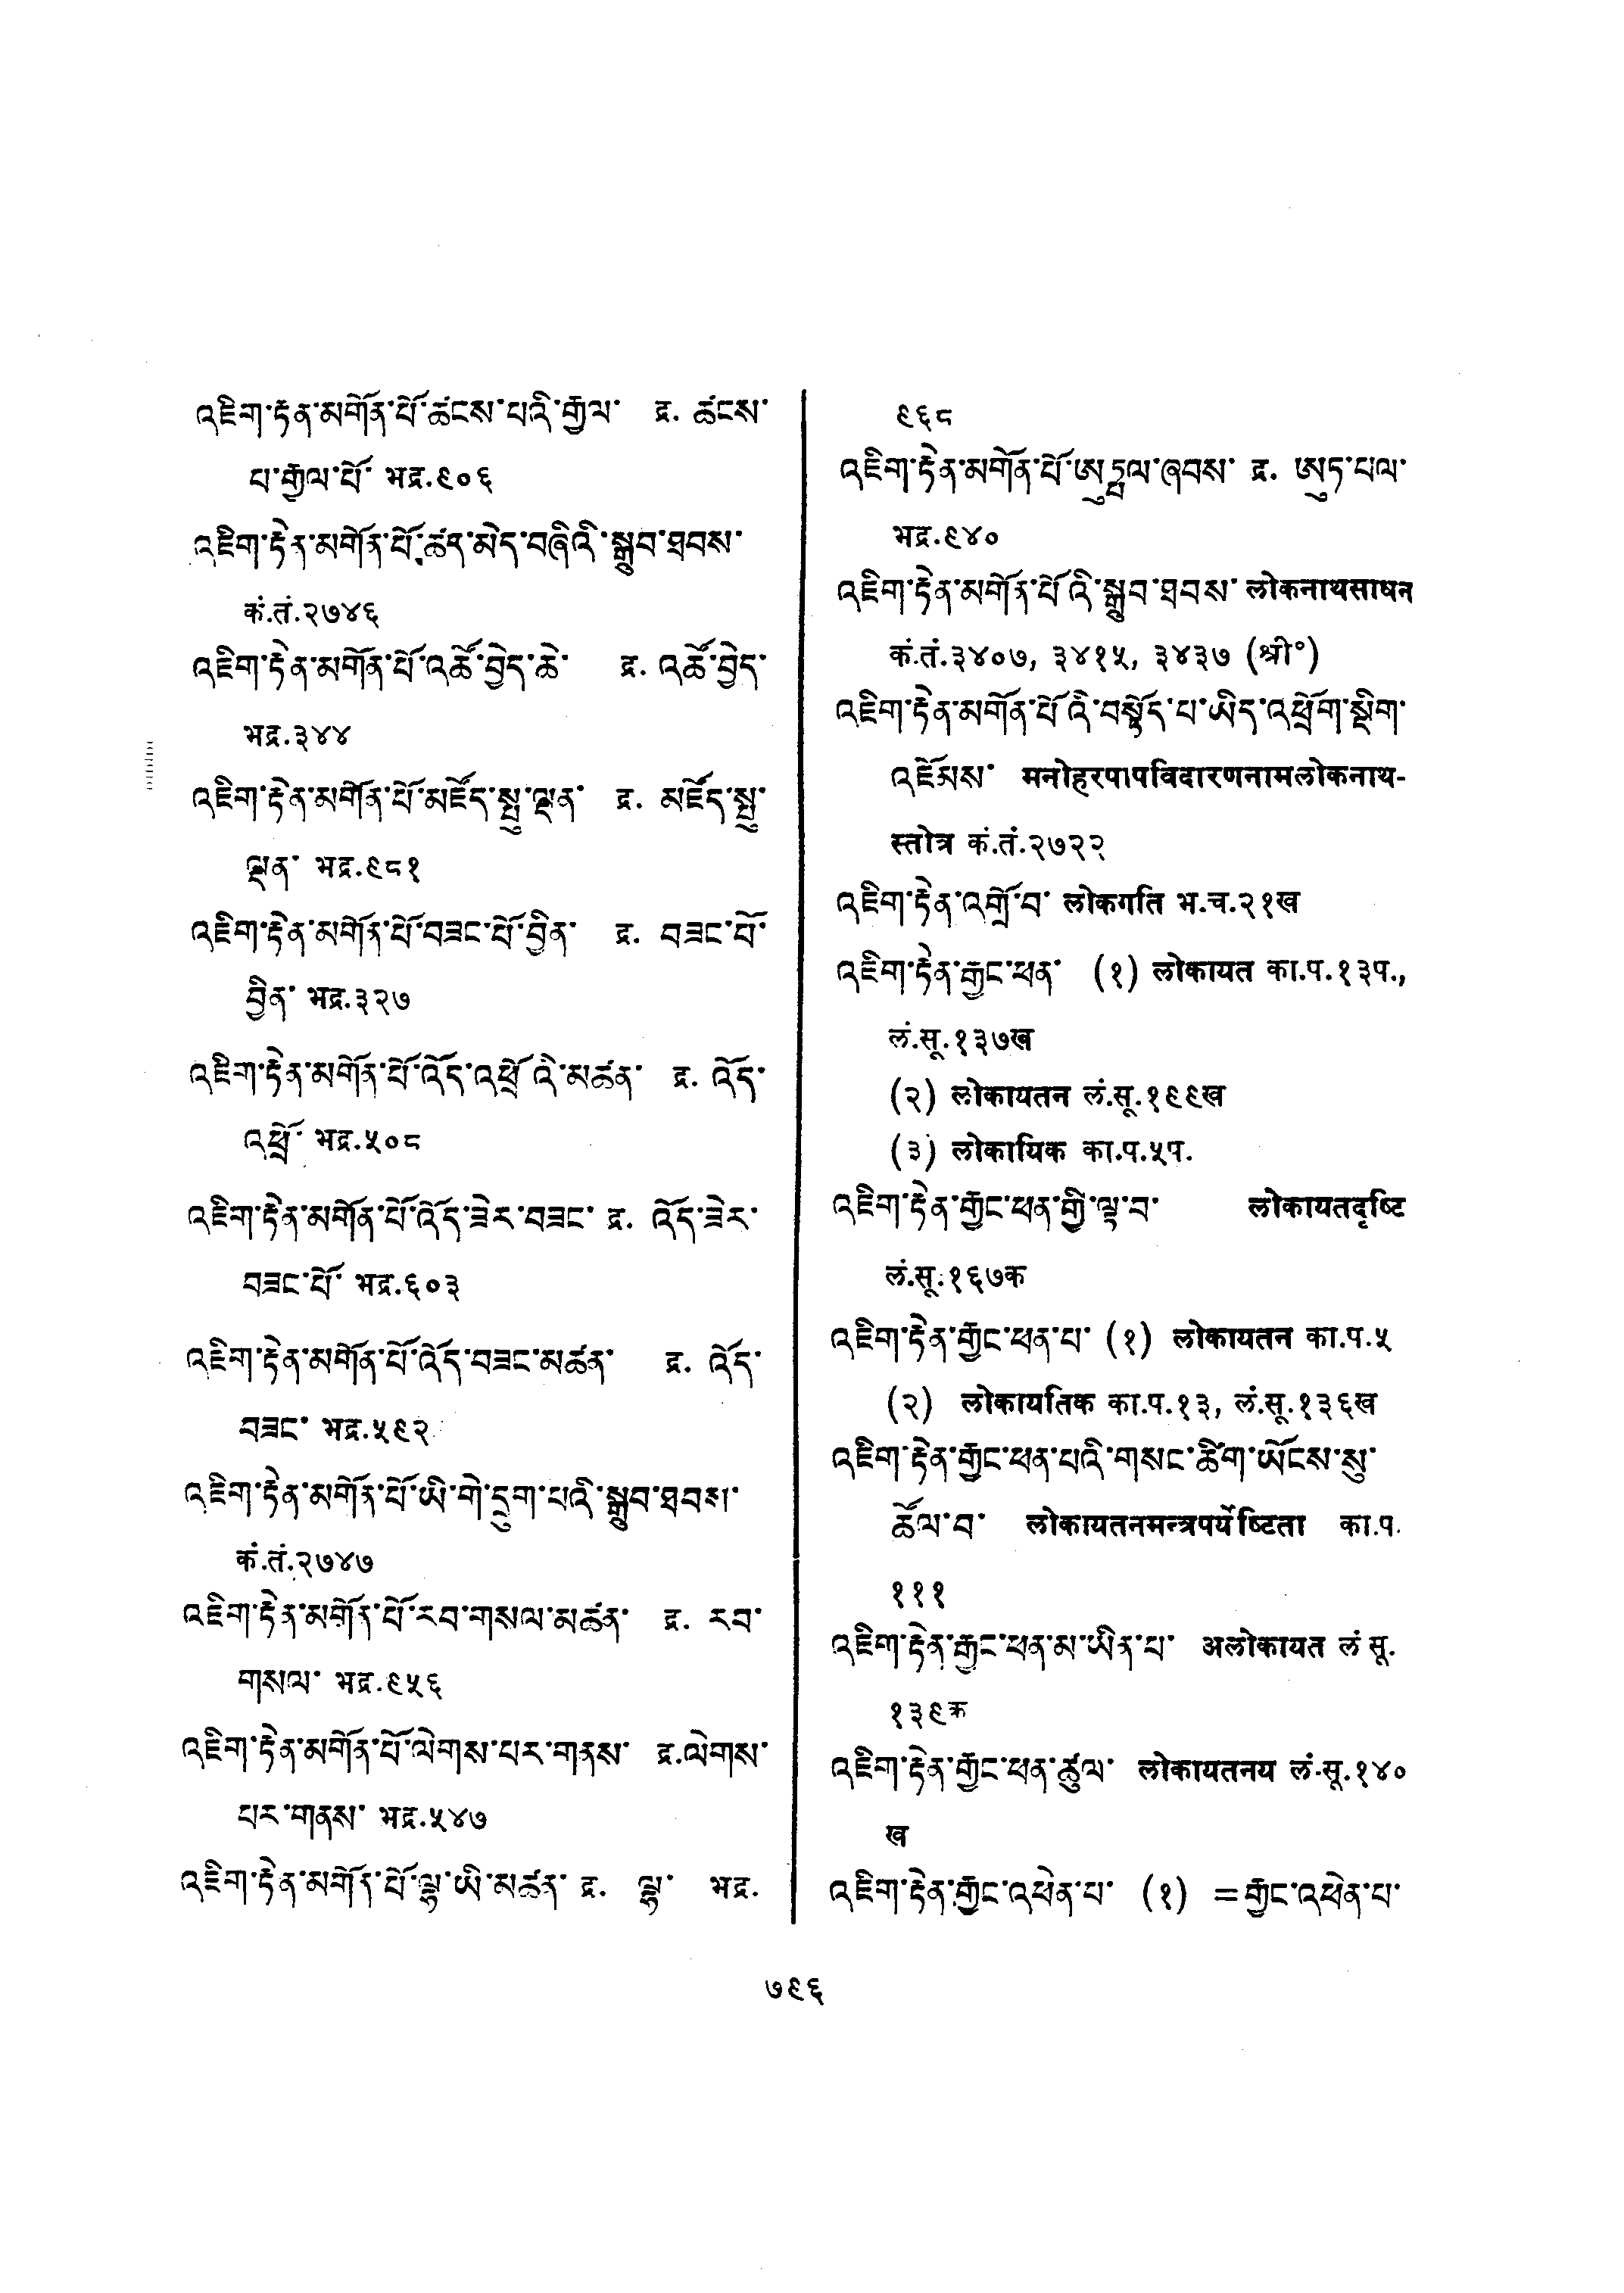 འཇིག་རྟེན་མགོན་པོ་ཚངས་པའི་རྒྱལ་ द्र. ཚངས་
པ་རྒྱལ་པོ་ भद्र.९०६
འཇིག་རྟེན་མགོན་པོ་ཚད་མེད་བཞིའི་སྒྲུབ་ཐབས་
कं.तं.२७४६
འཇིག་རྟེན་མགོན་པོ་འཚོ་བྱེད་ཆེ་ द्र. འཚོ་བྱེད་
भद्र.३४४
འཇིག་རྟེན་མགོན་པོ་མཛོད་སྤུ་ལྡན་ द्र. མཛོད་སྤུ་
ལྡན་ भद्र.९८१
འཇིག་རྟེན་མགོན་པོ་བཟང་པོ་བྱིན་ द्र. བཟང་པོ་
བྱིན་ भद्र.३२७
འཇིག་རྟེན་མགོན་པོ་འོད་འཕྲོ་འི་མཚན་ द्र. འོད་
འཕྲོ་ भद्र.५०८
འཇིག་རྟེན་མགོན་པོ་འོད་ཟེར་བཟང་ द्र. འོད་ཟེར་
བཟང་པོ་ भद्र.६०३
འཇིག་རྟེན་མགོན་པོ་འོད་བཟང་མཚན་ द्र. འོད་
བཟང་ भद्र.५९२
འཇིག་རྟེན་མགོན་པོ་ཡི་གེ་དྲུག་པའི་སྒྲུབ་ཐབས་
कं.तं.२७४७
འཇིག་རྟེན་མགོན་པོ་རབ་གསལ་མཚན་ द्र. རབ་
གསལ་ भद्र.९५६
འཇིག་རྟེན་མགོན་པོ་ལེགས་པར་གནས་ द्र.ལེགས་
པར་གནས་ भद्र.५४७
འཇིག་རྟེན་མགོན་པོ་ལྷ་ཡི་མཚན་ द्र. ལྷ་ भद्र.
९६८
འཇིག་རྟེན་མགོན་པོ་ཨུཏྤལ་ཞབས་ द्र. ཨུཏ་པལ་
भद्र.९४०
འཇིག་རྟེན་མགོན་པོ་འི་སྒྲུབ་ཐབས་ लोकनाथसाधन
कं.तं.३४०७, ३४१५, ३४३७ (श्री°)
འཇིག་རྟེན་མགོན་པོ་འི་བསྟོད་པ་ཡིད་འཕྲོག་སྡིག་
འཇོམས་ मनोहरपापविदारणनामलोकनाथ-
स्तोत्र कं.तं.२७२२
འཇིག་རྟེན་འགྲོ་བ་ लोकगति भ.च.२१ख
འཇིག་རྟེན་རྒྱང་ཕན་ (१) लोकायत का.प.१३प.,
लं.सू.१३७ख
(२) लोकायतन लं.सू.१९९ख
(३) लोकायिक का.प.५प.
འཇིག་རྟེན་རྒྱང་ཕན་གྱི་ལྟ་བ་ लोकायतदृष्टि
लं.सू.१६७क
འཇིག་རྟེན་རྒྱང་ཕན་པ་ (१) लोकायतन का.प.५
(२) लोकायतिक का.प.१३, लं.सू.१३६ख
འཇིག་རྟེན་རྒྱང་ཕན་པའི་གསང་ཚིག་ཡོངས་སུ་
ཚོལ་བ་ लोकायतनमन्त्रपर्येष्टिता का.प.
१११
འཇིག་རྟེན་རྒྱང་ཕན་མ་ཡིན་པ་ अलोकायत लं सू.
१३९क
འཇིག་རྟེན་རྒྱང་ཕན་ཚུལ་ लोकायतनय लं.सू.१४०
ख
འཇིག་རྟེན་རྒྱང་འཕེན་པ་ (१) =རྒྱང་འཕེན་པ་
७९६